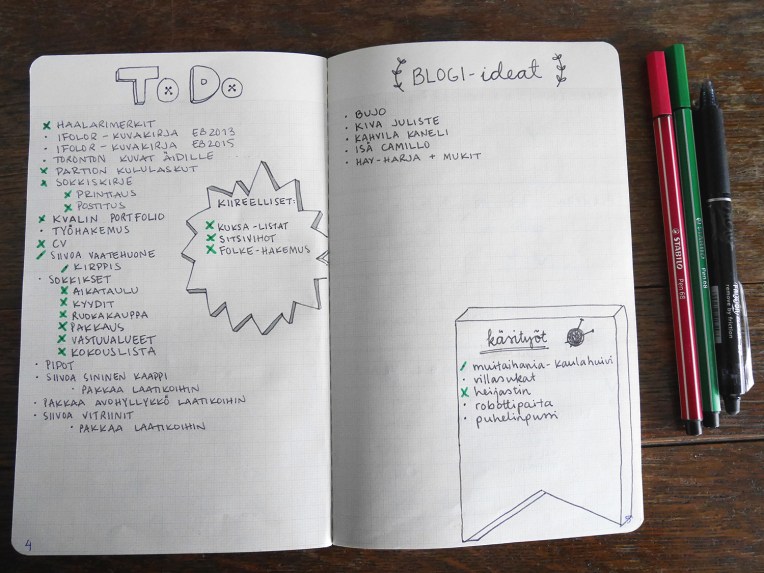 To Do
x HAALARIMERKIT
· IFOLOR - KUVAKIRJA EB2013
· IFOLOR - KUVAKIRJA EB2015
· TORONTON KUVAT ÄIDILLE
x PARTION KULULASKUT
x SOKKISKIRJE
x PRINTTAUS
x POSTITUS
x KVALIN PORTFOLIO
· TYÖHAKEMUS
x CV
/ SIIVOA VAATEHUONE
/ KIRPPIS
· SOKKIKSET
x AIKATAULU
x KYYDIT
x RUOKAKAUPPA
x PAKKAUS
x VASTUUALUEET
x KOKOUSLISTA
· PIPOT
· SIIVOA SININEN KAAPPI
· PAKKAA LAATIKOIHIN
· PAKKAA AVOHYLLYKKÖ LAATIKOIHIN
· SIIVOA VITRIINIT
· PAKKAA LAATIKOIHIN
4
KIIREELLISET:
x KUKSA-LISTAT
x SITSIVIHOT
x FOLKE-HAKEMUS
BLOGI-ideat
· BUJO
· KIVA JULISTE
· KAHVILA KANELI
· ISÄ CAMILLO
· HAY-HARJA + MUKIT
käsityöt
/ muitaihania-kaulahuivi
· villasukat
x heijastin
· robottipaita
· puhelinpussi
STABILO Pen 68
Pen 68
remove by friction